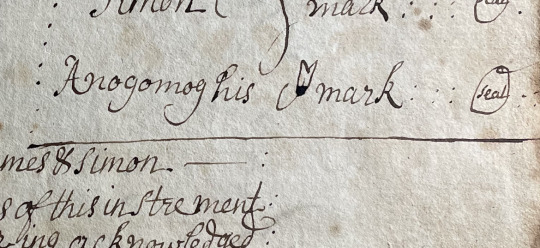 Simon mark seal
Anogomog his mark seal
mes & Simon
s of this instrement
ing acknowledged